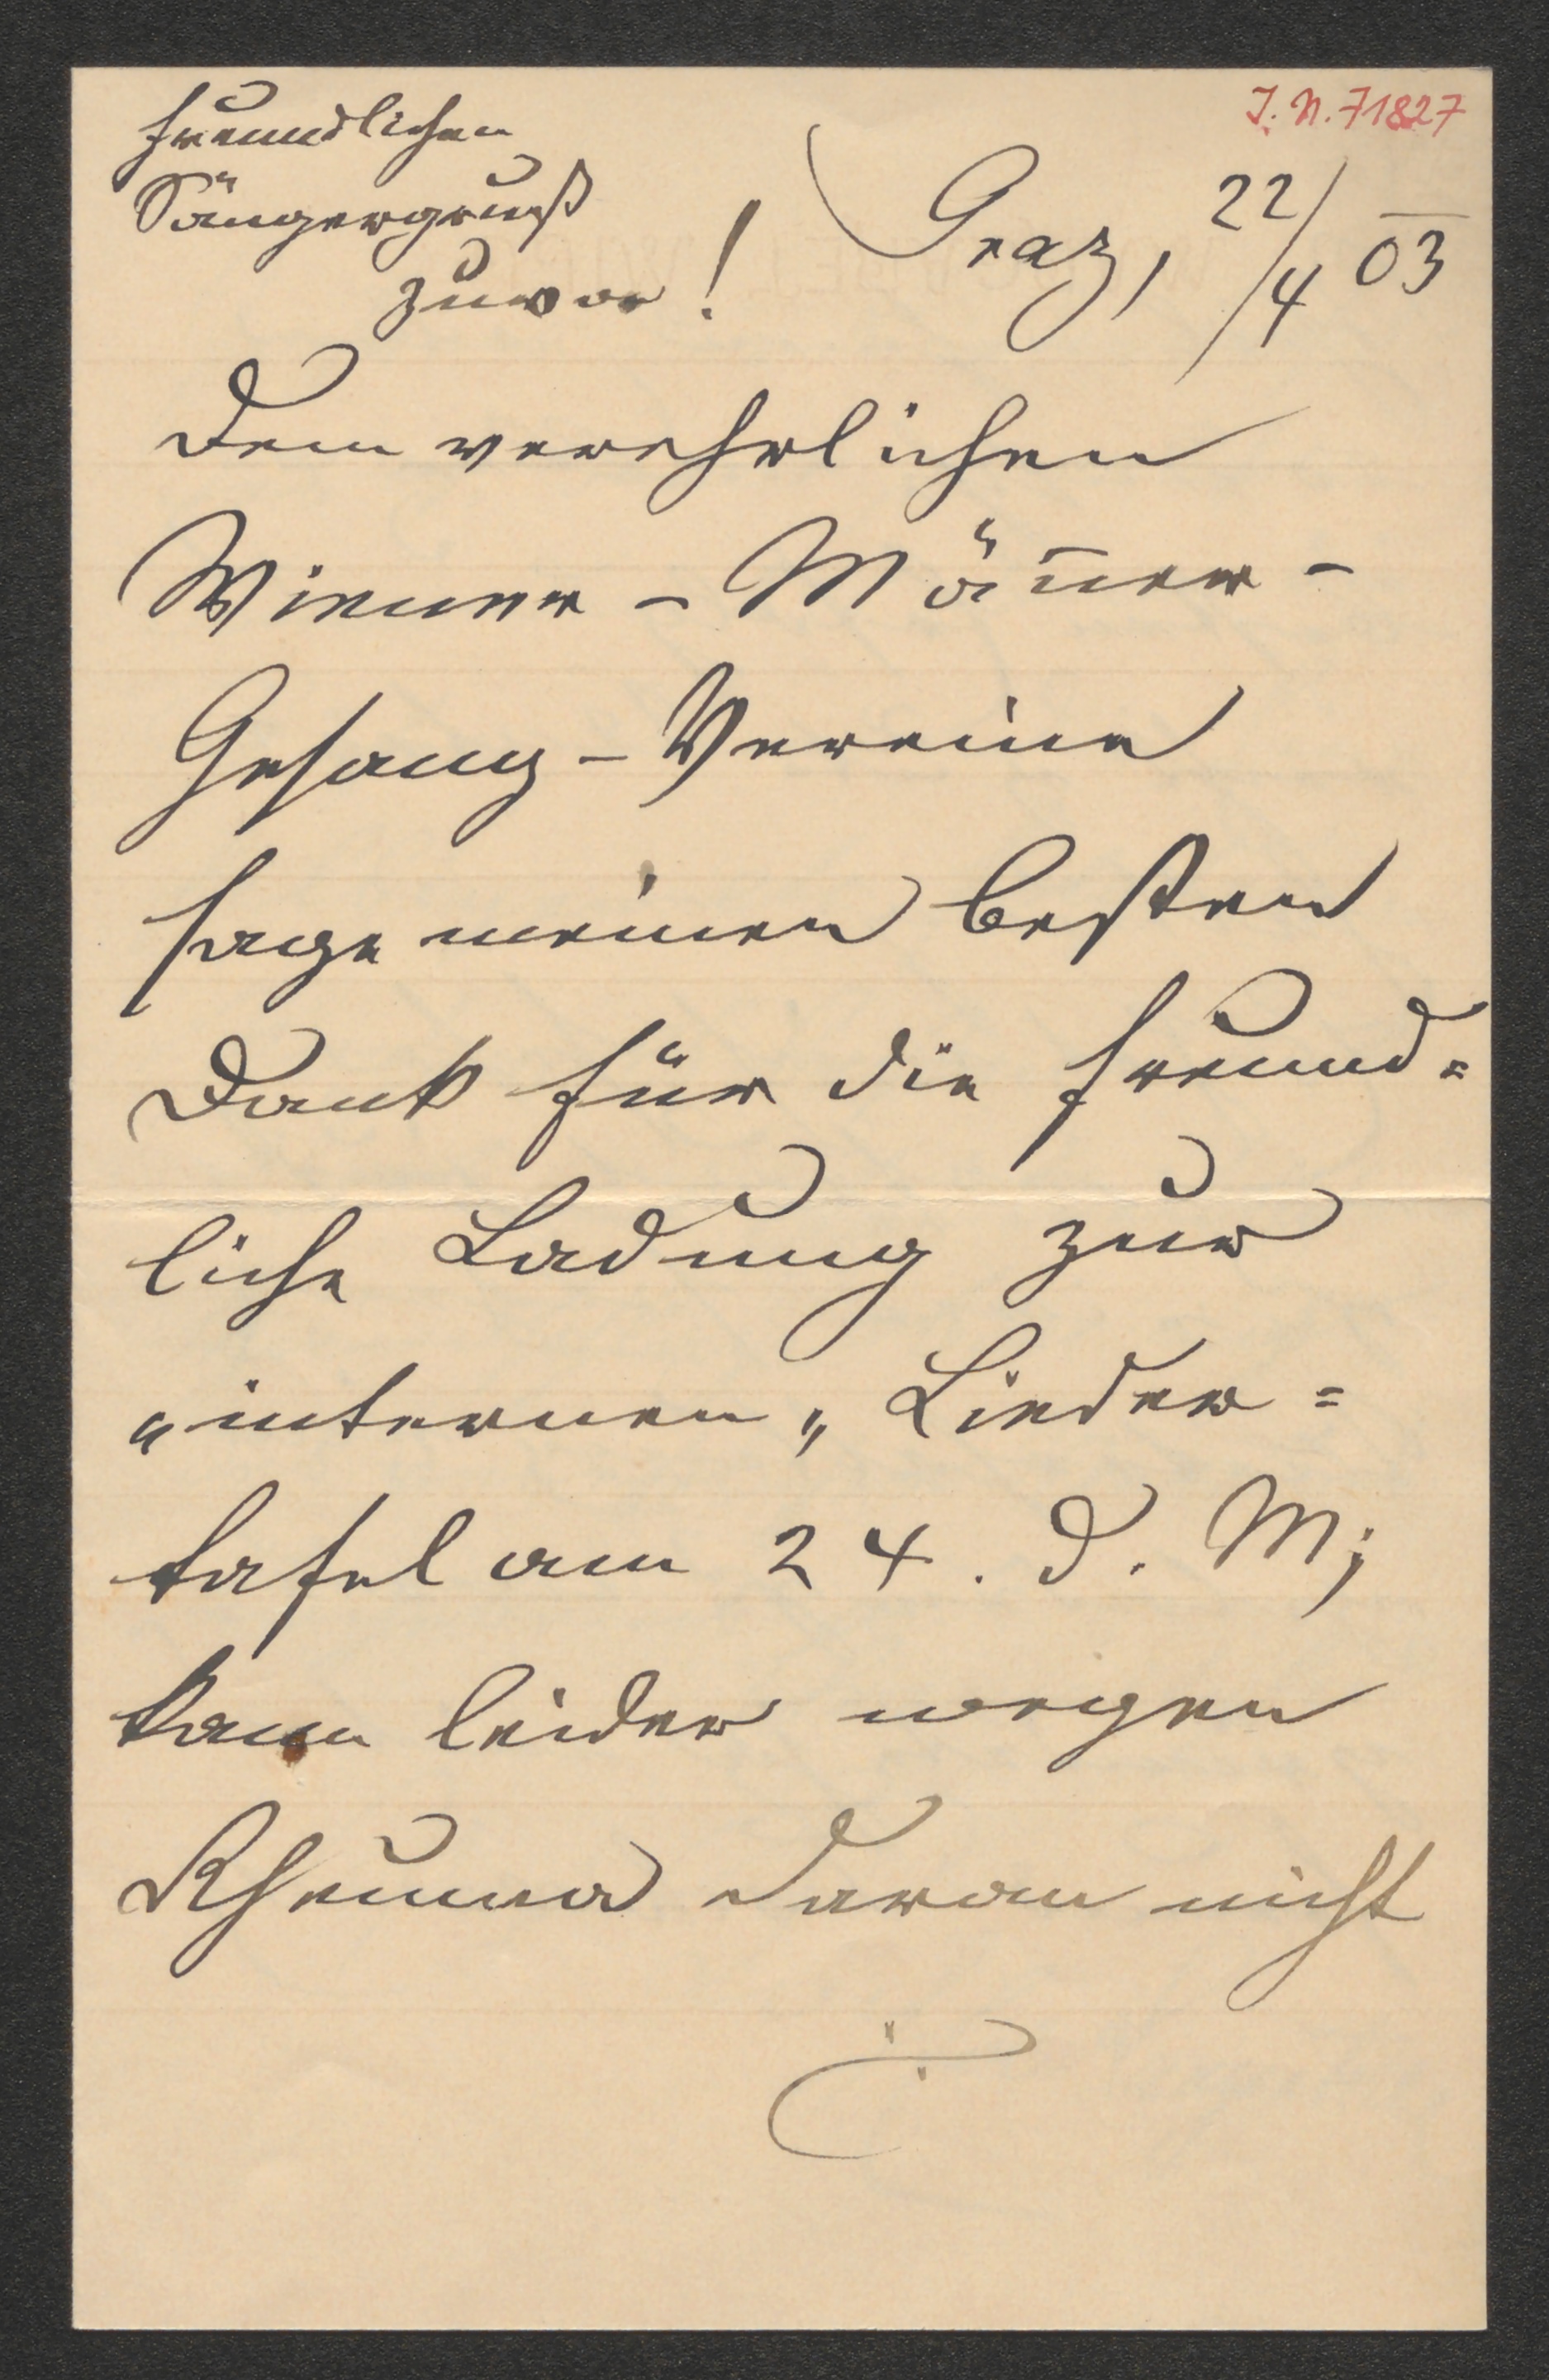 J. N. 71827
Freundlichen
Sängergruß
zuvor!
Graz, 22/4 03
Dem verehrlichen
Wiener-Mañer-
Gesang-Vereine
sage meinen besten
Dank für die freund=
liche Ladung zur
„internen„ Lieder=
tafel am 24. d. M;
kann leider wegen
Rheuma daran nicht